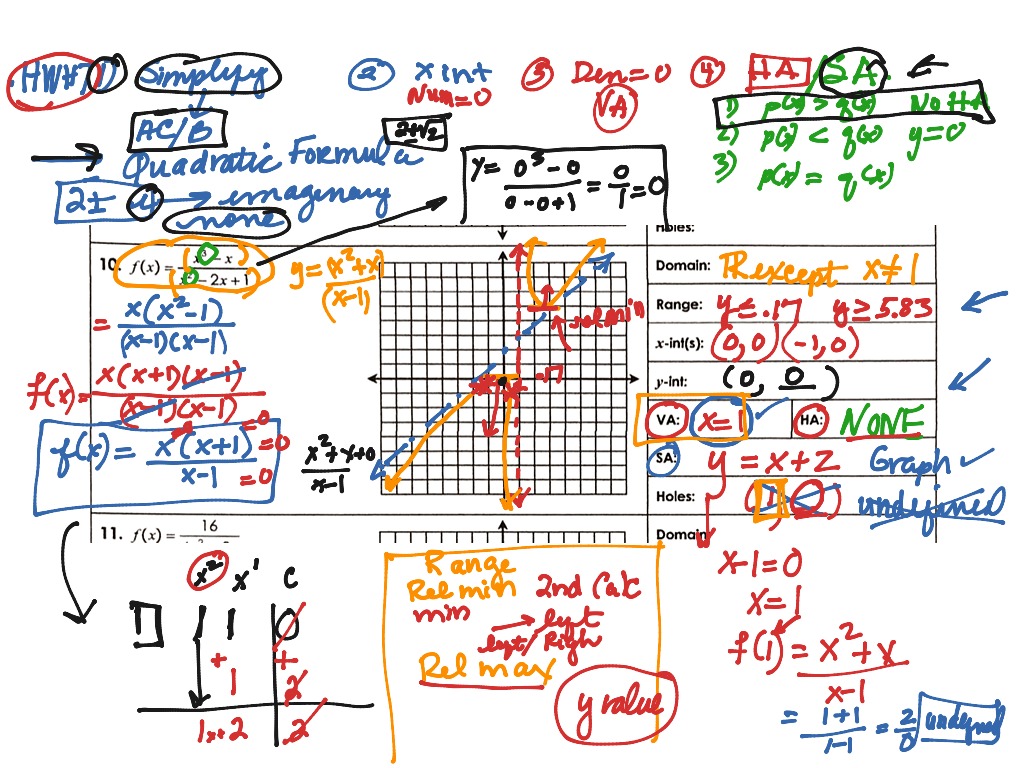 HW#7 1) Simplify
AC/B
Quadratic Formula
2± i → imaginary
none
2+√2
2 x int
Num=0
3 Den=0
VA
4 HA/SA
1) p(x) > q(x) No HA
2) p(x) < q(x) y=0
3) p(x) = q(x)
y= 0³-0 / 0-0+1 = 0/1 =0
10. f(x) = (x³ - x) / (x² - 2x + 1)
= x(x²-1) / (x-1)(x-1)
f(x)= x(x+1)(x-1) / (x-1)(x-1)
f(x)= x(x+1) / x-1
=0
=0
=0
y= (x²+x) / (x-1)
rel min
.17
x²+x+0 / x-1
Holes:
Domain: TR except x≠1
Range: y≤.17 y≥5.83
x-int(s): (0,0) (-1,0)
y-int: (0, 0)
VA: x=1
HA: NONE
SA: y = x+2 Graph ✓
Holes: (1, 0) undefined
Domain
11. f(x) = 16
x² x¹ C
1 1 1 0
+ +
1 2
1x+2 2
Range
Rel min 2nd Calc
min
→ left
left/Righ
Rel max
y value
x-1=0
x=1
f(1) = x²+x / x-1
= 1+1 / 1-1 = 2/0 undefined